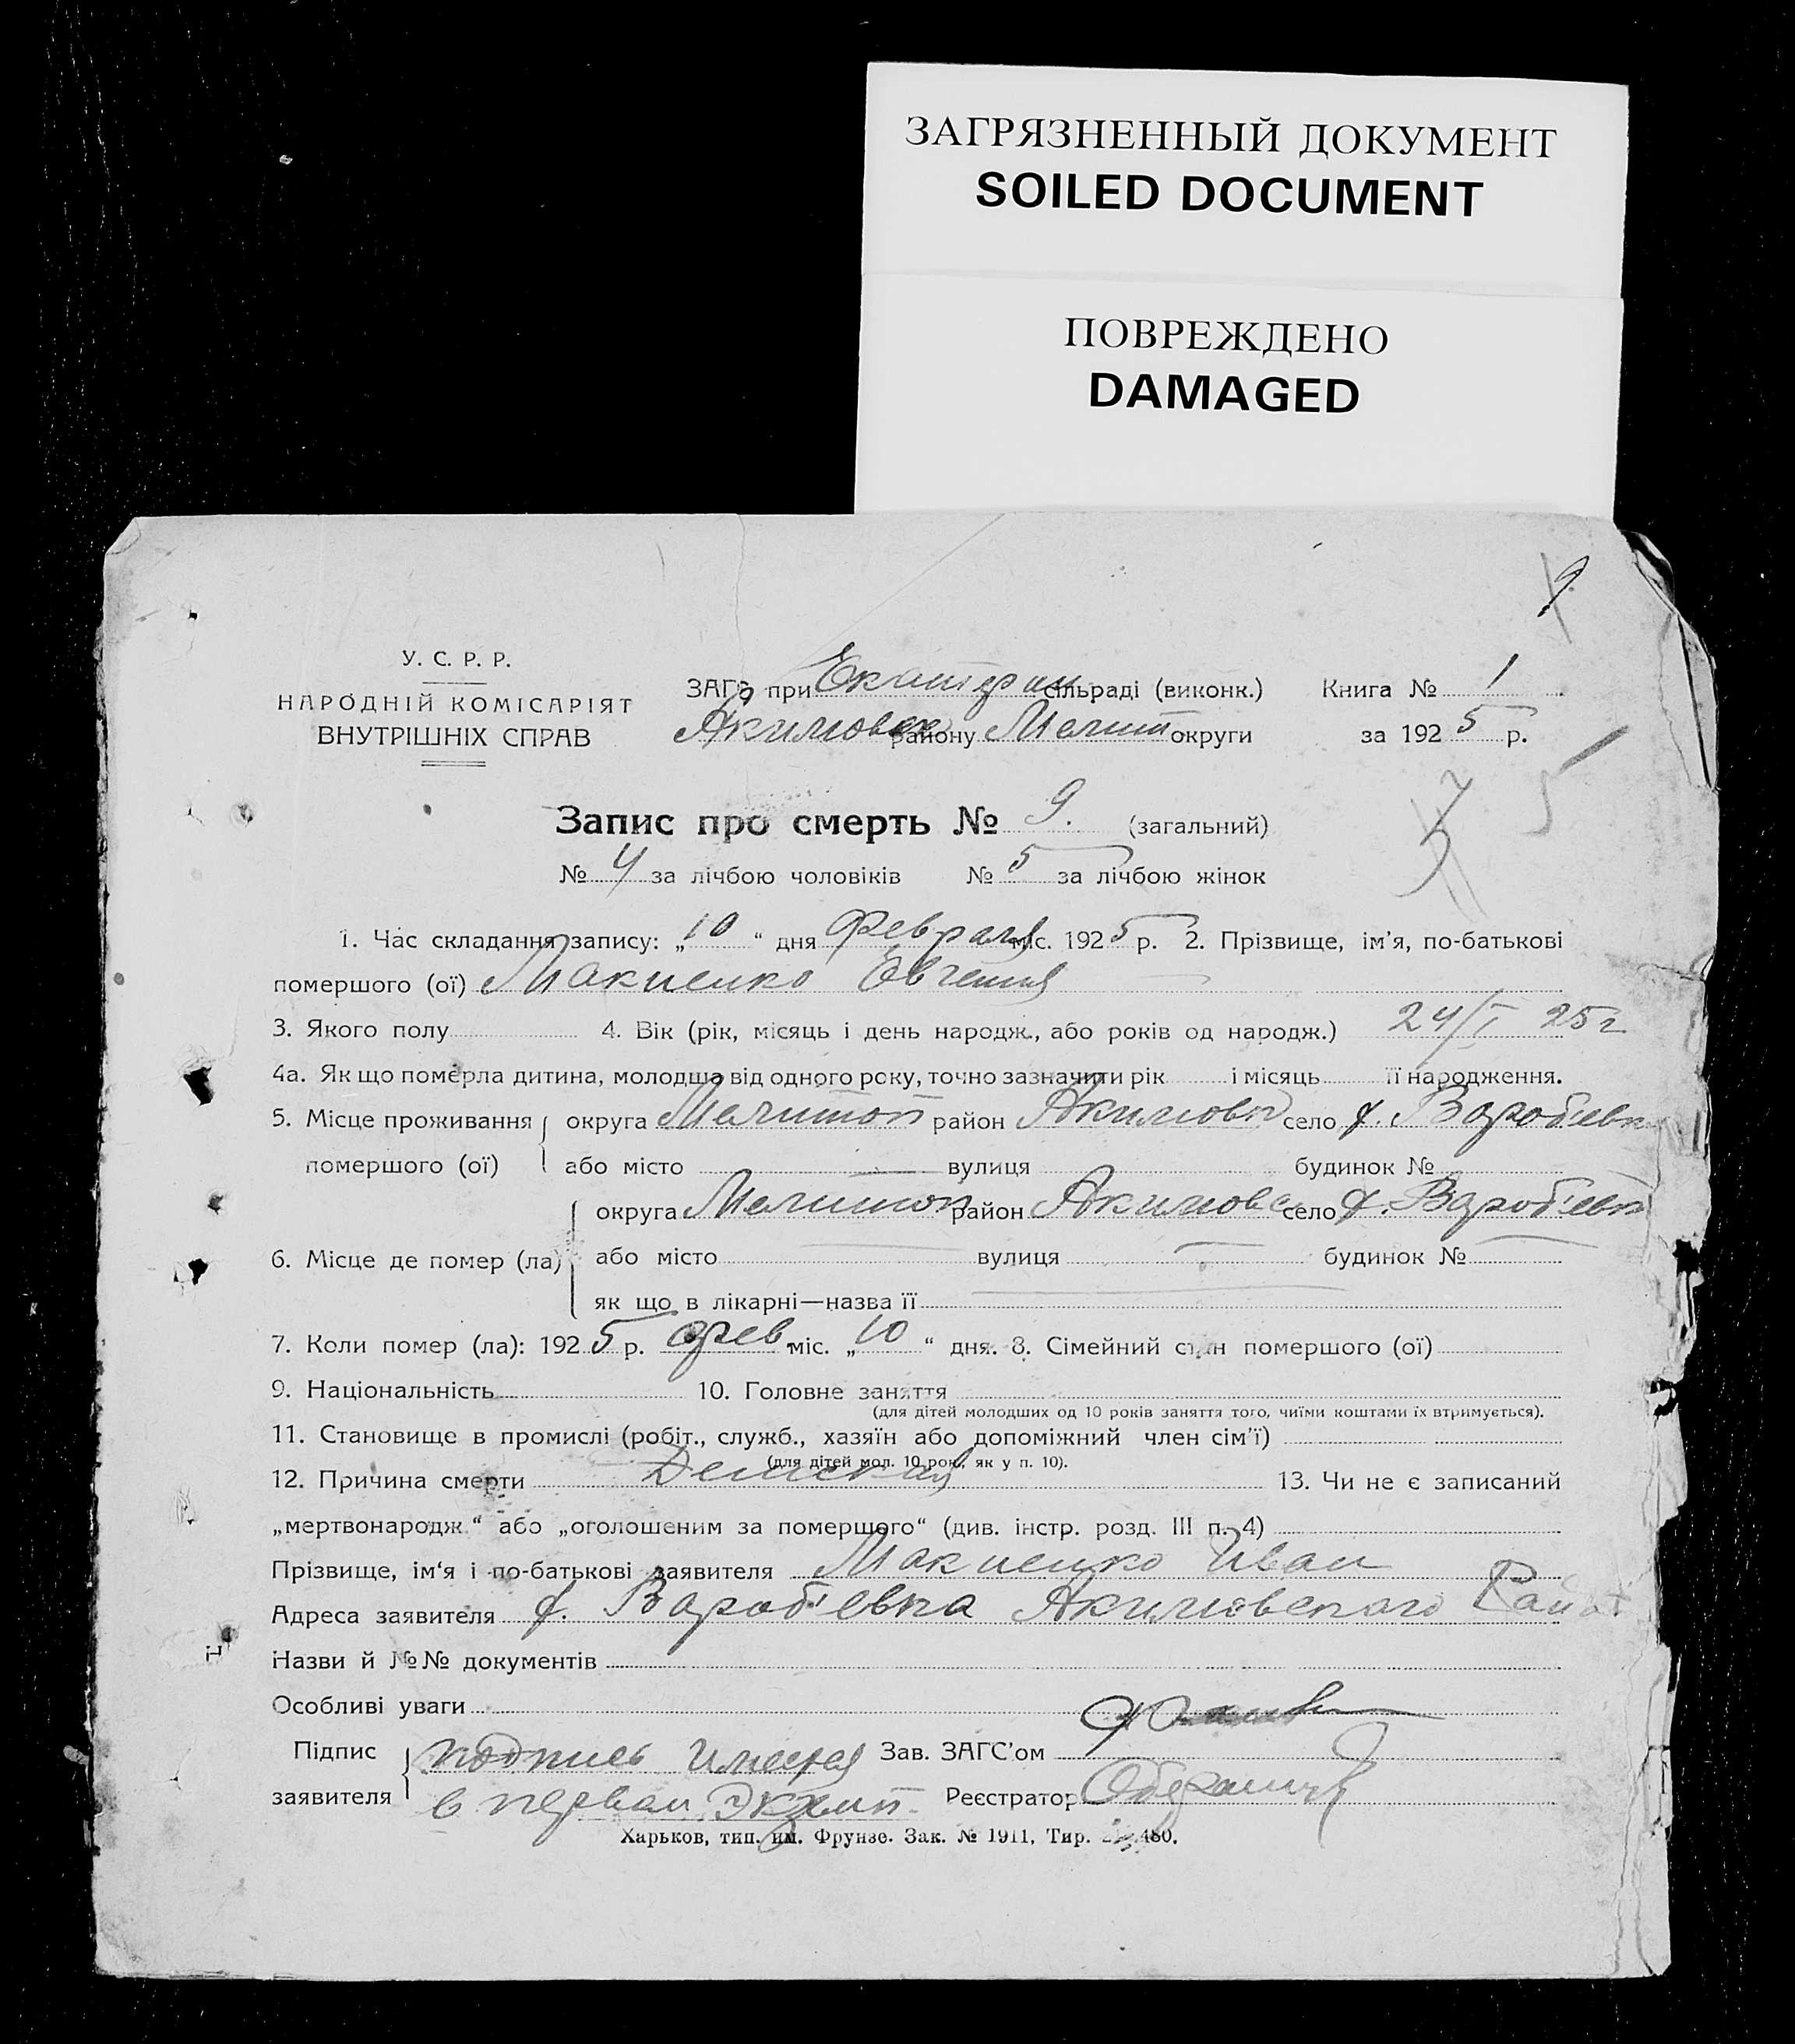 ЗАГРЯЗНЕННЫЙ ДОКУМЕНТ
SOILED DOCUMENT
ПОВРЕЖДЕНО
DAMAGED
9
У. С. Р. Р.
НАРОДНІЙ КОМІСАРІЯТ
ВНУТРІШНІХ СПРАВ
ЗАГС при Екатерин сільраді (виконк.)
Акимовск району Мелит округи
Книга № 1
за 1925 р.
Запис про смерть № 9. (загальний)
№ 4 за лічбою чоловіків № 5 за лічбою жінок
1. Час складання запису: „10“ дня Февраля міс. 1925 р. 2. Прізвище, ім’я, по-батькові
помершого (ої) Макиенко Евгения
3. Якого полу 4. Вік (рік, місяць і день народж., або років од народж.) 24/I 25 г
4а. Як що померла дитина, молодша від одного року, точно зазначити рік і місяць її народження.
5. Місце проживання округа Мелитоп район Акимовк село х. Вороб'евк
помершого (ої) або місто вулиця будинок №
округа Мелитоп район Акимовс село х. Вороб'евк
6. Місце де помер (ла) або місто вулиця будинок №
як що в лікарні—назва її
7. Коли помер (ла): 1925 р. фев міс. „10“ дня. 8. Сімейний стан помершого (ої)
9. Національність 10. Головне заняття
(для дітей молодших од 10 років заняття того, чиїми коштами їх втримується).
11. Становище в промислі (робіт., служб., хазяїн або допоміжний член сім’ї)
(для дітей мол. 10 рок., як у п. 10).
12. Причина смерти Детская 13. Чи не є записаний
„мертвонародж.“ або „оголошеним за помершого“ (див. інстр. розд. III п. 4)
Прізвище, ім‘я і по-батькові заявителя Макиенко Иван
Адреса заявителя х. Вороб'евка Акимовского Район
Назви й №№ документів
Особливі уваги
Підпис заявителя подпись имеется
в первом экземп.
Зав. ЗАГС’ом
Реєстратор
Харьков, тип. им. Фрунзе. Зак. № 1911, Тир. 480.